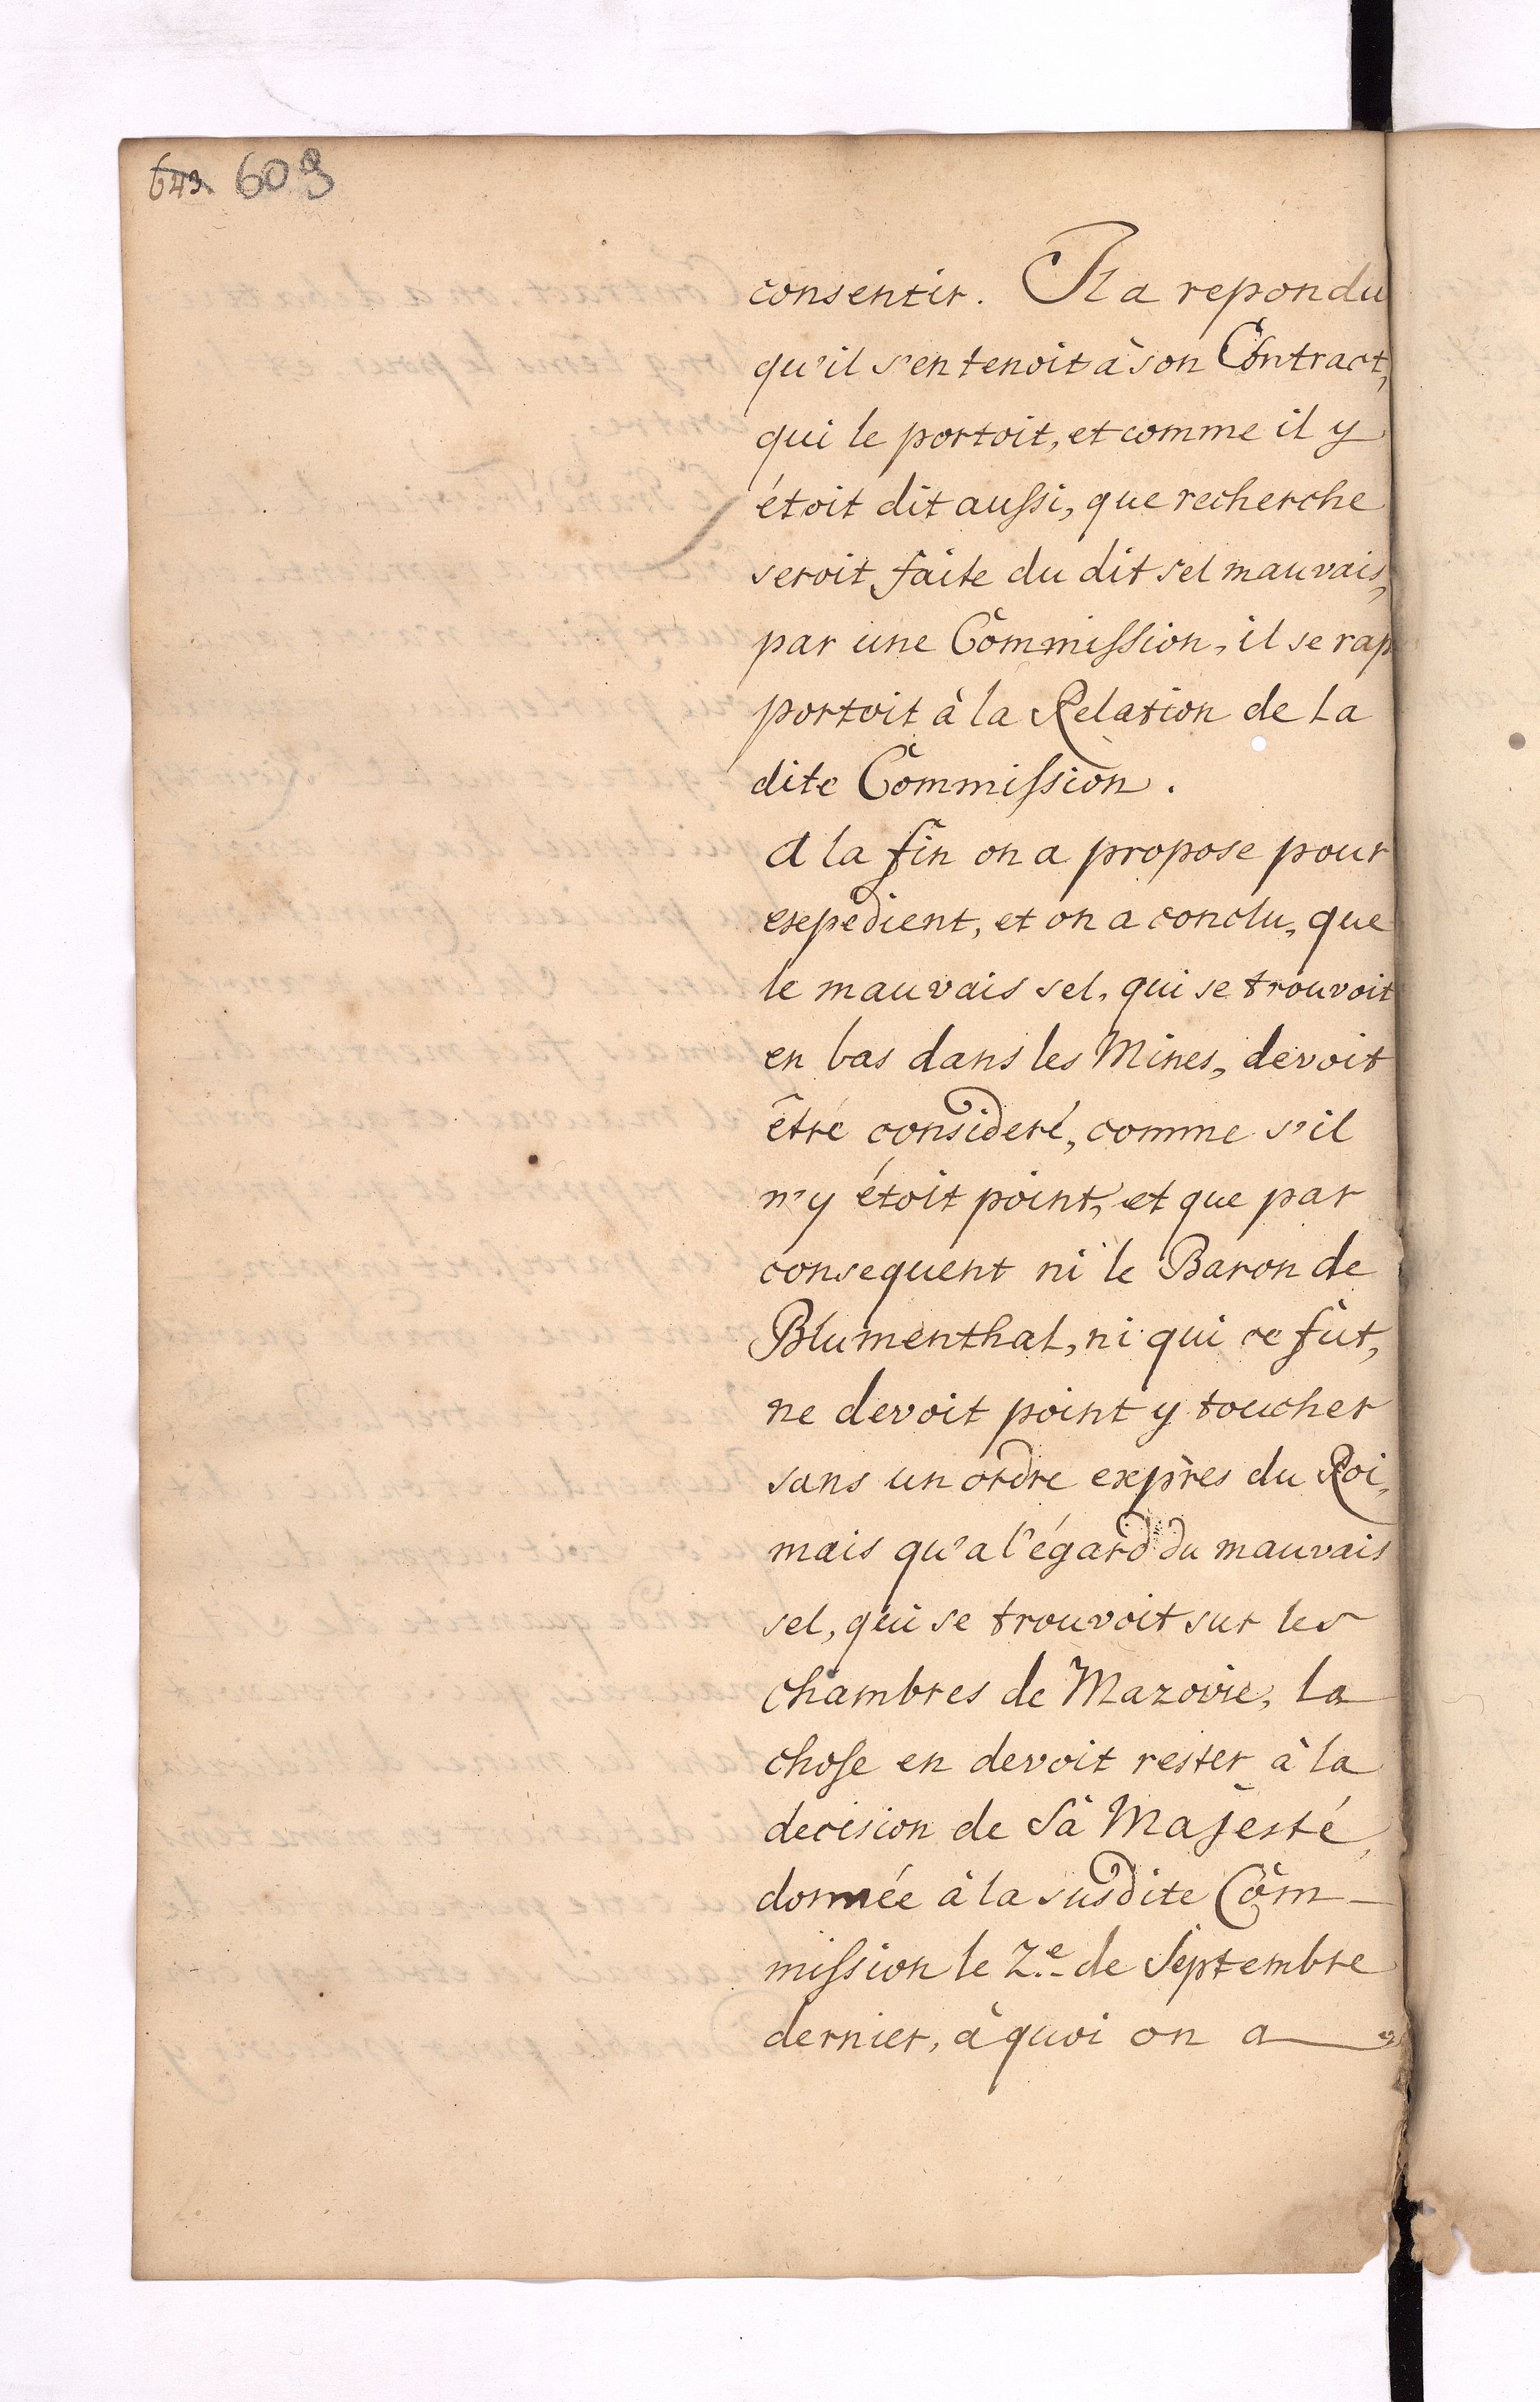 643 609
consentir. Il a repondu
qu'il s'en tenoit à son Contract,
qui le portoit, et comme il y
étoit dit aussi, que recherche
seroit faite du dit sel mauvais,
par une Commission, il se rap
portoit à la Relation de la
dite Commission.
A la fin on a propose pour
expedient, et on a conclu, que
le mauvais sel, qui se trouvoit
en bas dans les Mines, devoit
être consideré, comme s'il
n'y étoit point, et que par
consequent ni le Baron de
Blumenthal, ni qui ce fût,
ne devoit point y toucher
sans un ordre exprès du Roi,
mais qu'a l'égard du mauvais
sel, qui se trouvoit sur les
chambres de Mazovie, la
chose en devoit rester à la
decision de Sa Majesté,
donnée à la susdite Com-
mission le 2.e de Septembre
dernier, à quoi on a